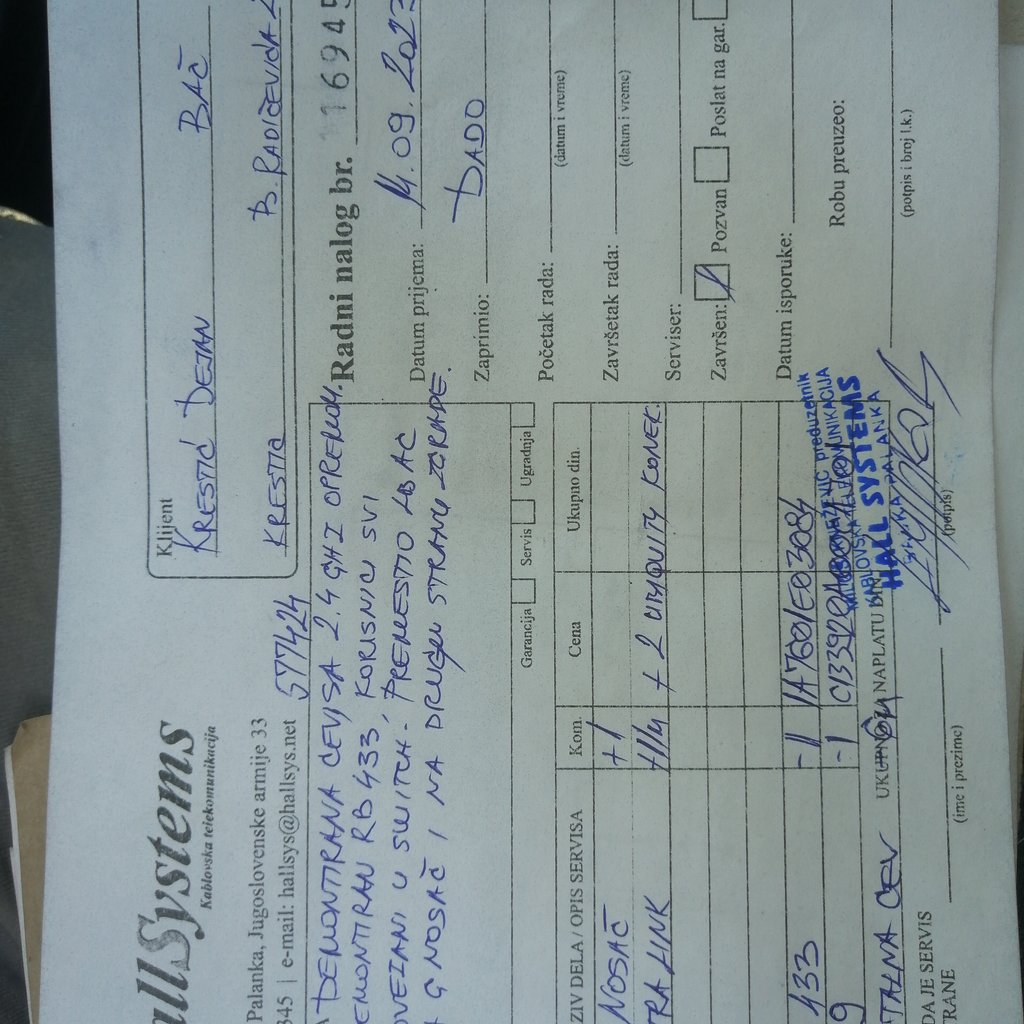 allSystems
Kablovska telekomunikacija
Palanka, Jugoslovenske armije 33
345 | e-mail: hallsys@hallsys.net
577424
Klijent
KRESTIĆ DEJAN BAČ
KRESTA B. RADIČEVIĆA 2
DEMONTIRANA CEV SA 2.4 GHZ OPREMOM,
EMONTIRAN RB 433, KORISNICI SVI
OVEZANI U SWITCH. PREMESTIO
G NOSAČ I NA DRUGU STRANU ZGRADE.
Garancija Servis Ugradnja
Radni nalog br. 16945
Datum prijema: 14.09.2023
Zaprimio: DADO
Početak rada:
(datum i vreme)
Završetak rada:
(datum i vreme)
Serviser:
Završen: Pozvan Poslat na gar.
Datum isporuke:
Robu preuzeo:
(potpis i broj l.k.)
ZIV DELA / OPIS SERVISA Kom. Cena Ukupno din.
NOSAČ +1
LINK + 2 UBIQUITY KONEK.
433 -1 1A7601E03084
9 -1
TALNA CEV
UKUPNO ZA NAPLATU DIN
preduzetnik
KABLOVSKA TELEKOMUNIKACIJA
HALL SYSTEMS
BAČKA PALANKA
DA JE SERVIS
TRANE
(ime i prezime)
(potpis)